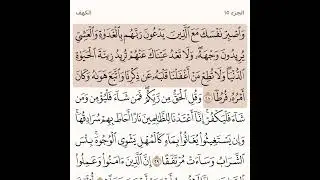 الجزء ١٥ الكهف
وَٱصۡبِرۡ نَفۡسَكَ مَعَ ٱلَّذِينَ يَدۡعُونَ رَبَّهُم بِٱلۡغَدَوٰةِ وَٱلۡعَشِيِّ
يُرِيدُونَ وَجۡهَهُۥۖ وَلَا تَعۡدُ عَيۡنَاكَ عَنۡهُمۡ تُرِيدُ زِينَةَ ٱلۡحَيَوٰةِ
ٱلدُّنۡيَاۖ وَلَا تُطِعۡ مَنۡ أَغۡفَلۡنَا قَلۡبَهُۥ عَن ذِكۡرِنَا وَٱتَّبَعَ هَوَىٰهُ وَكَانَ
أَمۡرُهُۥ فُرُطٗا ٢٨ وَقُلِ ٱلۡحَقُّ مِن رَّبِّكُمۡۖ فَمَن شَآءَ فَلۡيُؤۡمِن وَمَن
شَآءَ فَلۡيَكۡفُرۡۚ إِنَّآ أَعۡتَدۡنَا لِلظَّٰلِمِينَ نَارًا أَحَاطَ بِهِمۡ سُرَادِقُهَاۚ
وَإِن يَسۡتَغِيثُواْ يُغَاثُواْ بِمَآءٖ كَٱلۡمُهۡلِ يَشۡوِي ٱلۡوُجُوهَۚ بِئۡسَ
ٱلشَّرَابُ وَسَآءَتۡ مُرۡتَفَقًا ٢٩ إِنَّ ٱلَّذِينَ ءَامَنُواْ وَعَمِلُواْ